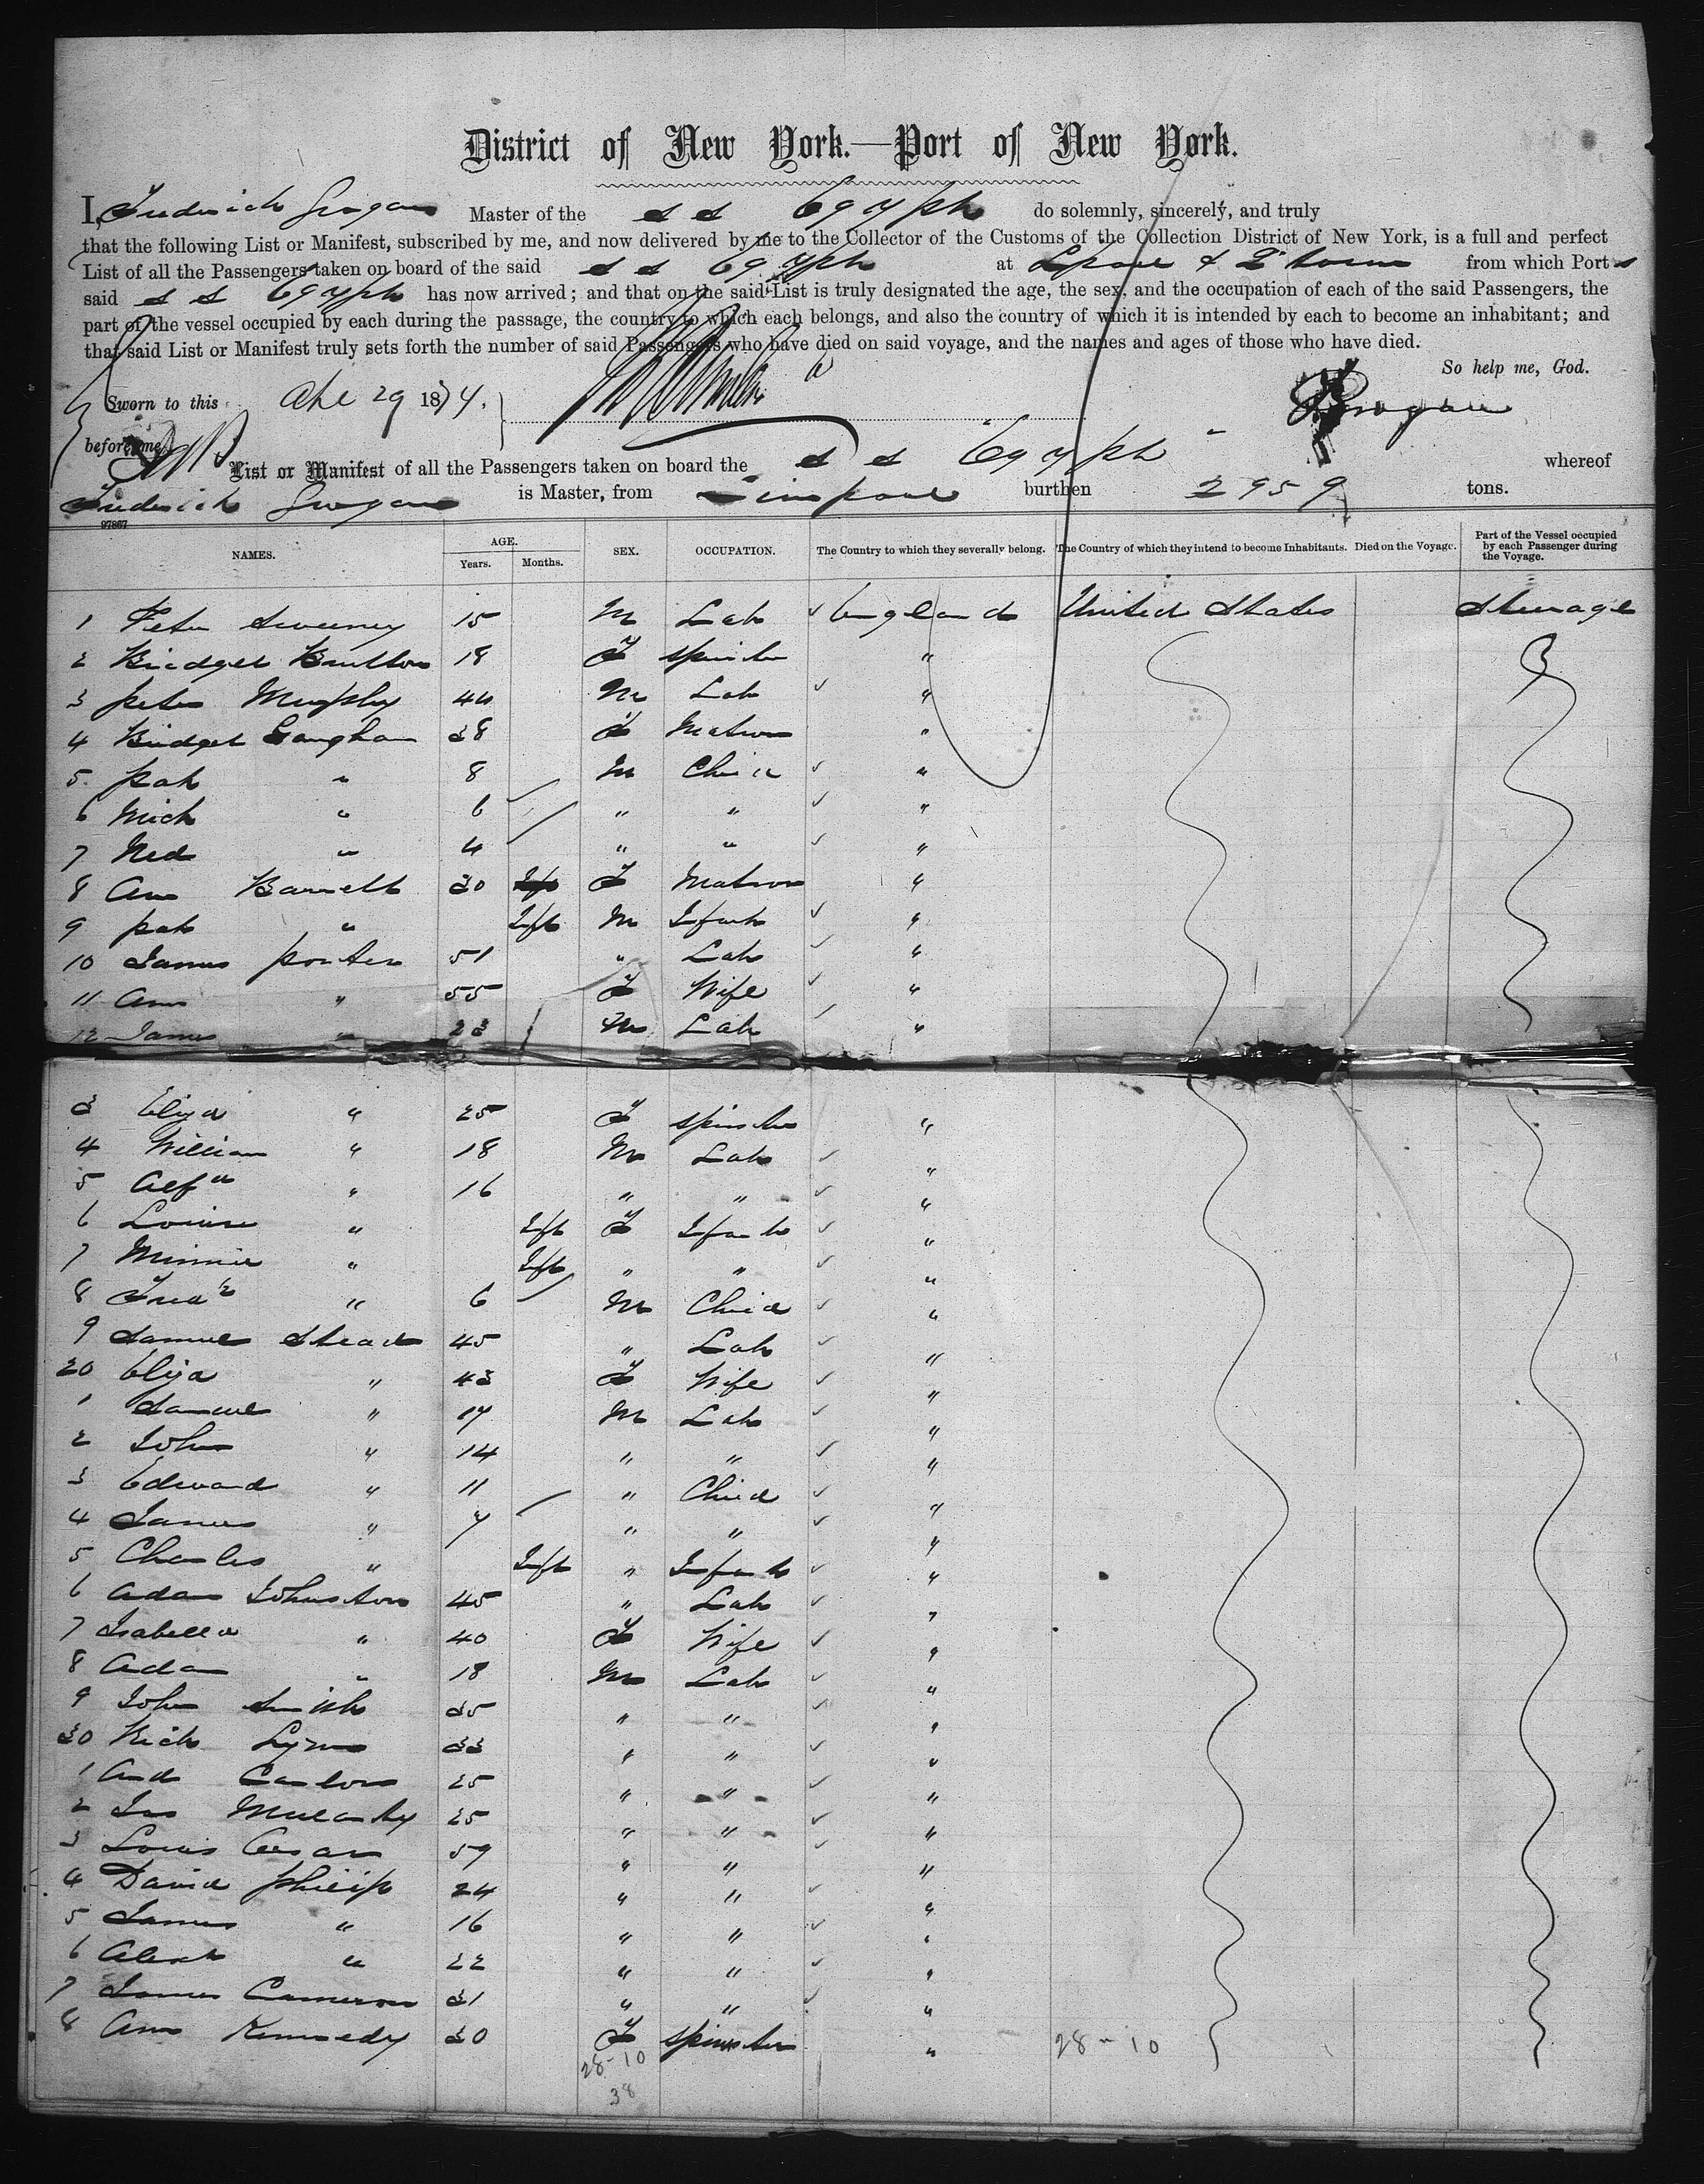 District of New York.—Port of New York.
I, Frederick Grogan Master of the S S Egypt do solemnly, sincerely, and truly
that the following List or Manifest, subscribed by me, and now delivered by me to the Collector of the Customs of the Collection District of New York, is a full and perfect
List of all the Passengers taken on board of the said S S Egypt at Lpool & Qtown from which Ports
said S S Egypt has now arrived; and that on the said List is truly designated the age, the sex, and the occupation of each of the said Passengers, the
part of the vessel occupied by each during the passage, the country to which each belongs, and also the country of which it is intended by each to become an inhabitant; and
that said List or Manifest truly sets forth the number of said Passengers who have died on said voyage, and the names and ages of those who have died.
So help me, God.
Sworn to this 29 1874. Grogan
before me
List or Manifest of all the Passengers taken on board the S S Egypt whereof
Frederick Grogan is Master, from Liverpool burthen 2959 tons.
97867
NAMES. AGE. Years. Months. SEX. OCCUPATION. The Country to which they severally belong. The Country of which they intend to become Inhabitants. Died on the Voyage. Part of the Vessel occupied by each Passenger during the Voyage.
1 Peter Sweeney 15 M Lab England United States Steerage
2 Bridget 18 F Spinster "
3 Peter Murphy 44 M Lab "
4 Bridget Gaughan 38 F Matron "
5 Pat " 8 M Child "
6 Mich " 6 " " "
7 Ned " 4 " " "
8 Ann Barrett 30 F Matron "
9 Pat " Inft M Infant "
10 James Porter 51 " Lab "
11 Ann " 55 F Wife "
12 James " 23 M Lab "
3 Eliza " 25 F Spinster "
4 William " 18 M Lab "
5 Alfd " 16 " " "
6 Louise " Inft F Infant "
7 Minnie " Inft " " "
8 Fredk " 6 M Child "
9 Samuel Stead 45 " Lab "
20 Eliza " 43 F Wife "
1 Samuel " 17 M Lab "
2 John " 14 " " "
3 Edward " 11 " Child "
4 James " 7 " " "
5 Charles " Inft " Infant "
6 Adam Johnston 45 " Lab "
7 Isabella " 40 F Wife "
8 Adam " 18 M Lab "
9 John Smith 35 " " "
30 Rich Lyns 33 " " "
1 And Carlow 25 " " "
2 Jas Mulcahy 25 " " "
3 Louis 59 " " "
4 David Philip 24 " " "
5 James " 16 " " "
6 Alexr " 22 " " "
7 James Cameron 31 " " "
8 Ann Kennedy 30 F Spinster "
28-10 28-10
38